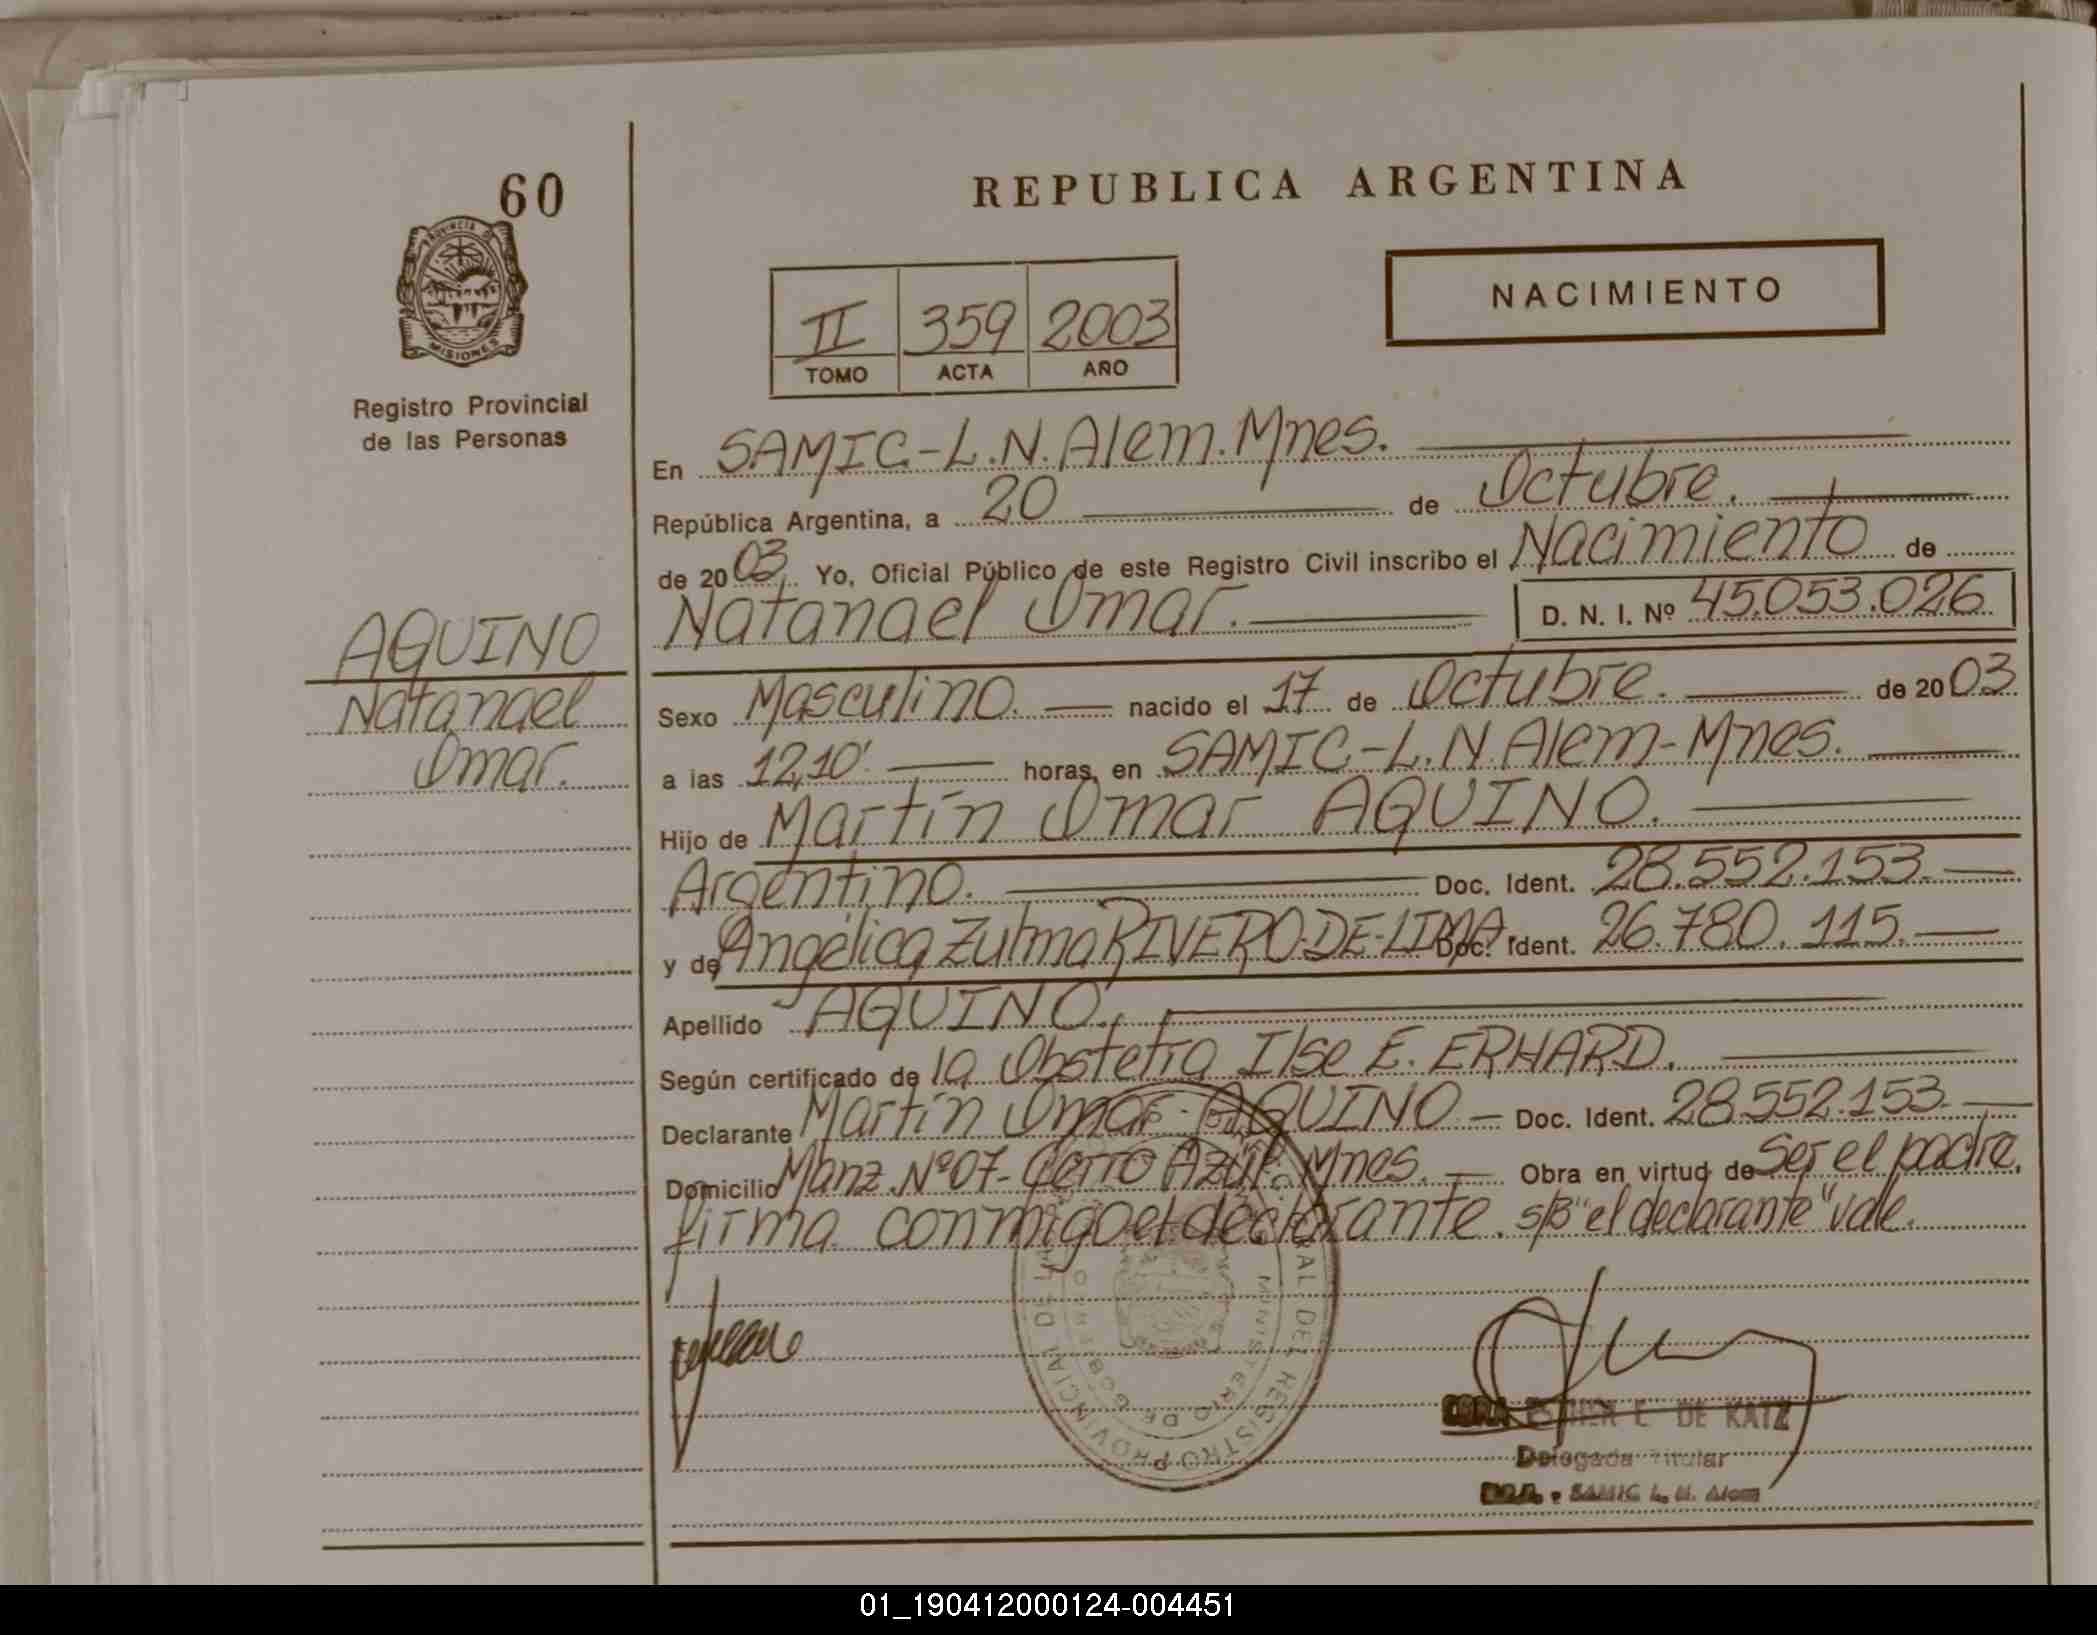 60
REPUBLICA ARGENTINA
PROVINCIA DE
MISIONES
NACIMIENTO
II 359 2003
TOMO ACTA AÑO
Registro Provincial
de las Personas
En SAMIC.-L.N.Alem.Mnes.
República Argentina, a 20 de Octubre.
de 2003. Yo, Oficial Público de este Registro Civil inscribo el Nacimiento de
Natanael Omar. D. N. I. Nº 45.053.026
AQUINO
Natanael
Omar.
Sexo Masculino. nacido el 17 de Octubre. de 2003
a las 12,10' horas, en SAMIC.-L.N.Alem-Mnes.
Hijo de Martín Omar AQUINO.
Argentino. Doc. Ident. 28.552.153.
y de Angélica Zulma RIVERO-DE-LIMA. Doc. Ident. 26.780.115.
Apellido AQUINO.
Según certificado de la Obstetra Ilse E. ERHARD.
Declarante Martín Omar AQUINO Doc. Ident. 28.552.153.
Domicilio Manz.Nº07-Cerro Azul-Mnes. Obra en virtud de Ser el padre,
firma conmigo el declarante. s/B "el declarante" vale.
REGISTRO PROVINCIAL DE
MINISTERIO DE GOBIERNO
ESTHER E. DE KATZ
Delegada Titular
SAMIC L. N. Alem
01_190412000124-004451